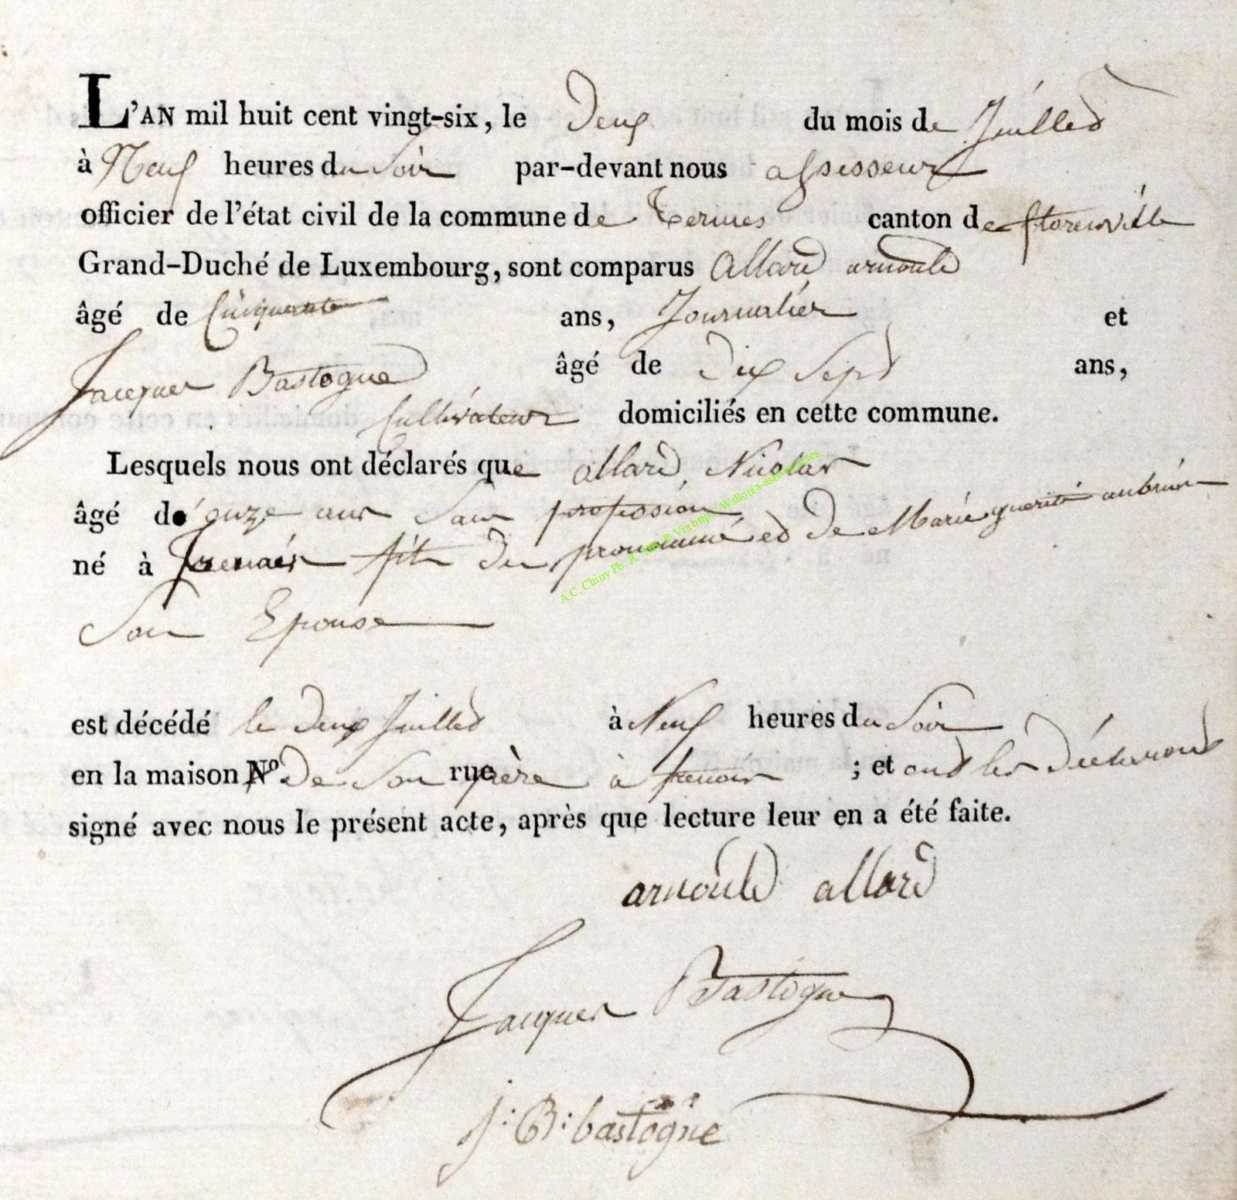 L'AN mil huit cent vingt-six, le Deux du mois de Juilled
à Neuf heures du Soir par-devant nous assesseur
officier de l'état civil de la commune de Termes canton de florenville
Grand-Duché de Luxembourg, sont comparus Allard arnould
âgé de Cinquante ans, Journalier et
Jacques Bastogne âgé de Dix Sept ans,
Cultivateur domiciliés en cette commune.
Lesquels nous ont déclarés que allard, Nicolas
âgé de onze ans San profession
né à frenois fils du prénommé ed de Marie aubrion
Son Epouse
est décédé le Deux Juilled à Neuf heures du Soir
en la maison No. De Son rue père à frenois ; et ond les Déclarans
signé avec nous le présent acte, après que lecture leur en a été faite.
arnould allard
Jacques Bastogne
j:B: bastogne